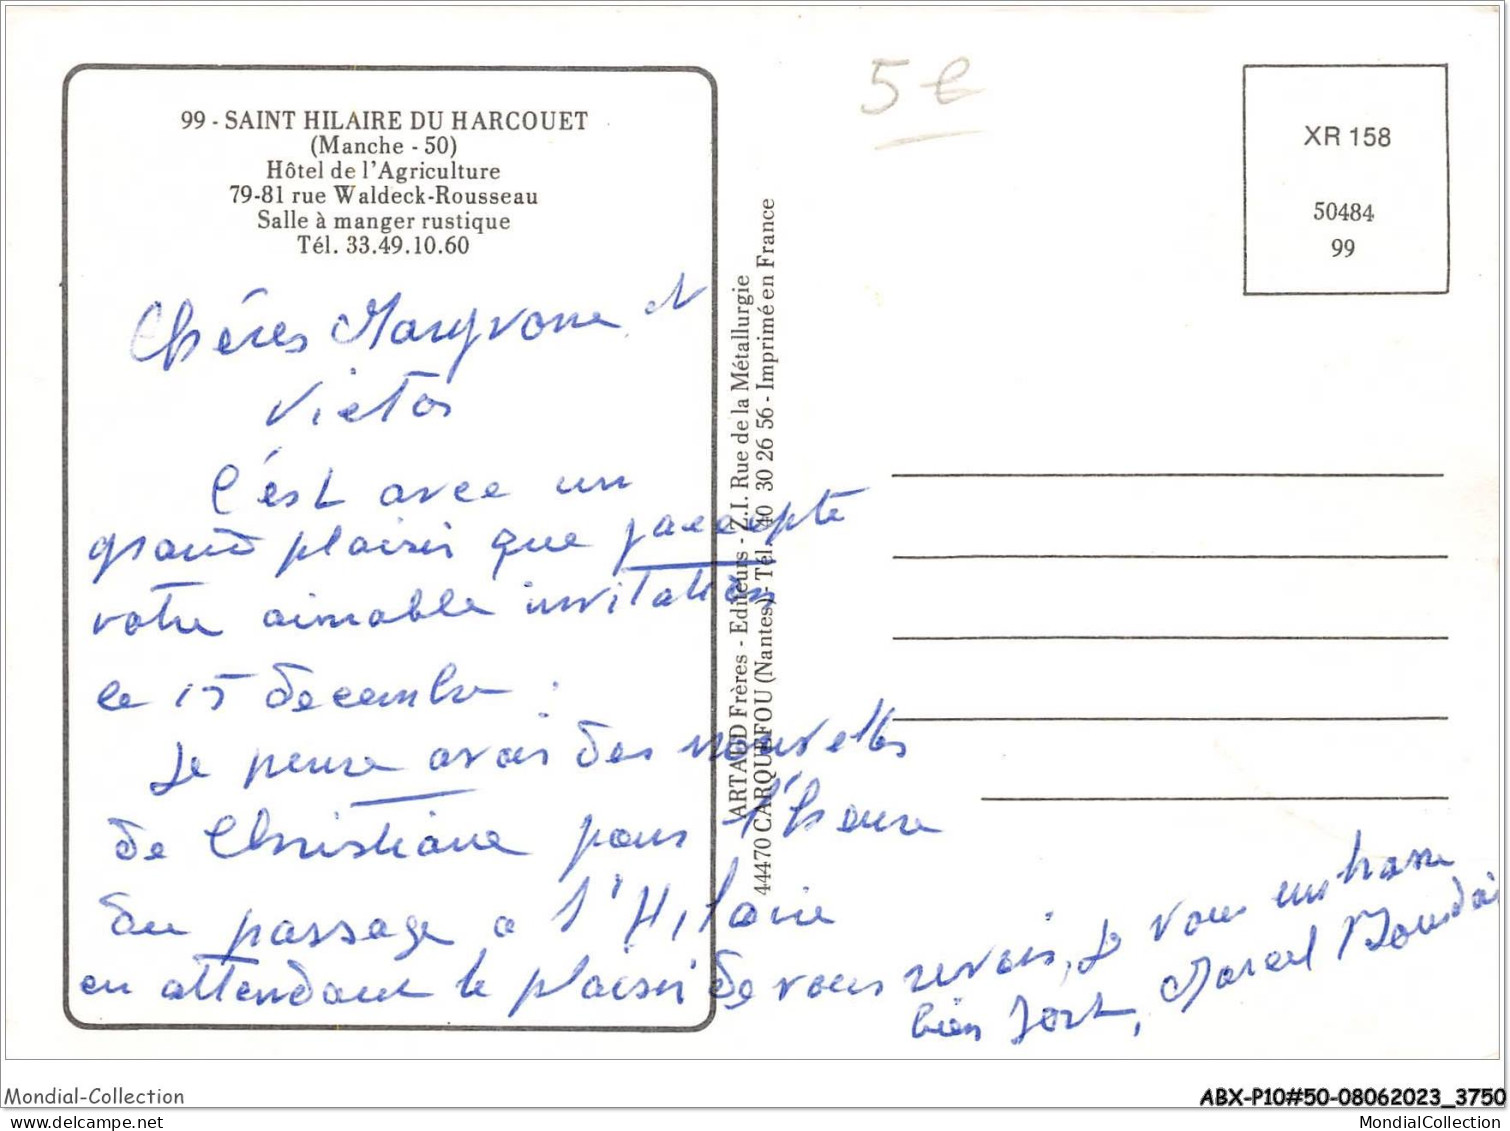 5 €
99 - SAINT HILAIRE DU HARCOUET
(Manche - 50)
Hôtel de l'Agriculture
79-81 rue Waldeck-Rousseau
Salle à manger rustique
Tél. 33.49.10.60
XR 158
50484
99
ARTAUD Frères - Editeurs - Z.I. Rue de la Métallurgie
44470 CARQUEFOU (Nantes) - Tél. 40 30 26 56 - Imprimé en France
Chères Maryvonne et
Victor
C'est avec un
grand plaisir que j'accepte
votre aimable invitation
le 15 décembre.
Je pense avoir des nouvelles
de Christiane pour l'heure
du passage a St Hilaire
en attendant le plaisir de vous revoir, je vous embrasse
bien fort, Marcel
Mondial-Collection
ABX-P10#50-08062023_3750
MondialCollection